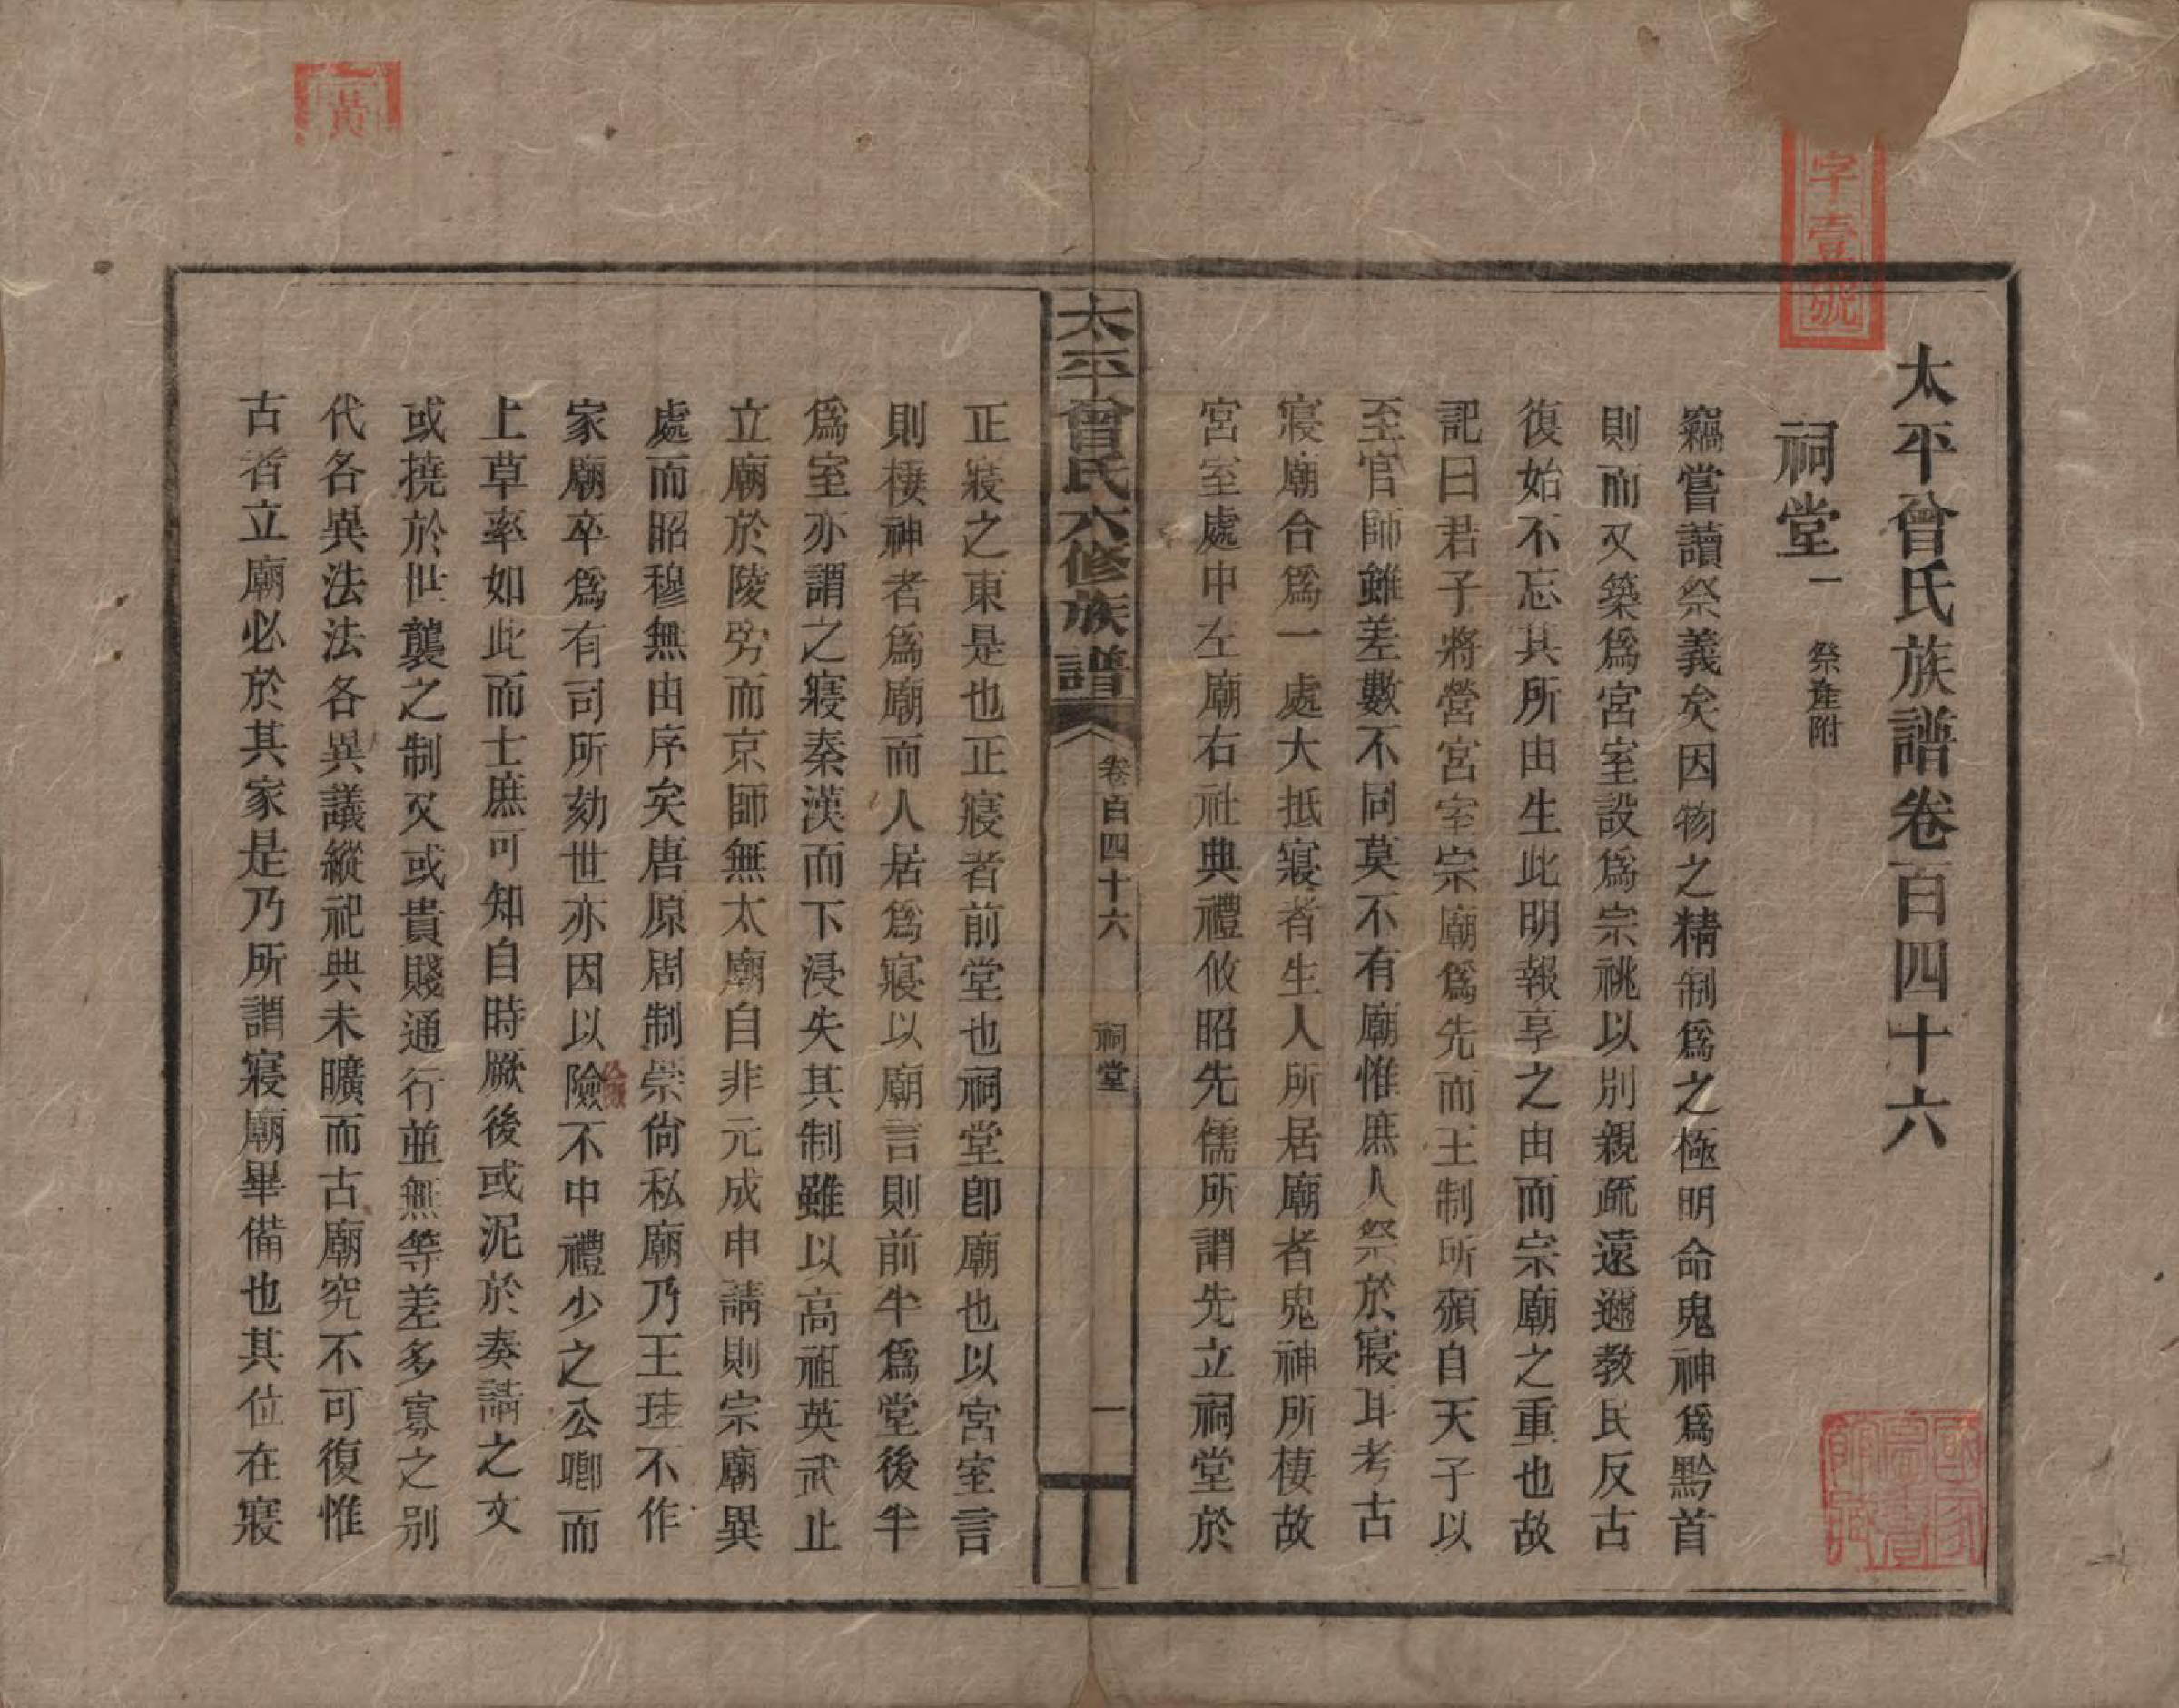 太平曾氏族譜卷一百四十六
祠堂一 祭產附
竊嘗讀祭義矣因物之精制爲之極明命鬼神爲黔首
則而又築爲宮室設爲宗祧以別親疏遠邇教民反古
復始不忘其所由生此明報享之由而宗廟之重也故
記曰君子將營宮室宗廟爲先而王制所頒自天子以
至官師雖差數不同莫不有廟惟庶人祭於寢耳考古
寢廟合爲一處大抵寢者生人所居廟者鬼神所棲故
宮室處中左廟右社典禮攸昭先儒所謂先立祠堂於
太平曾氏六修族譜 卷百四十六 祠堂 一
正寢之東是也正寢者前堂也祠堂卽廟也以宮室言
則棲神者爲廟而人居爲寢以廟言則前半爲堂後半
爲室亦謂之寢秦漢而下浸失其制雖以高祖英武止
立廟於陵旁而京師無太廟自非元成申請則宗廟異
處而昭穆無由序矣唐原周制崇尙私廟乃王珪不作
家廟卒爲有司所劾世亦因以險不中禮少之公卿而
上草率如此而士庶可知自時厥後或泥於奏請之文
或撓於世襲之制又或貴賤通行並無等差多寡之別
代各異法法各異議縱祀典未曠而古廟究不可復惟
古者立廟必於其家是乃所謂寢廟畢備也其位在寢
黃
字壹號
國家圖書館藏